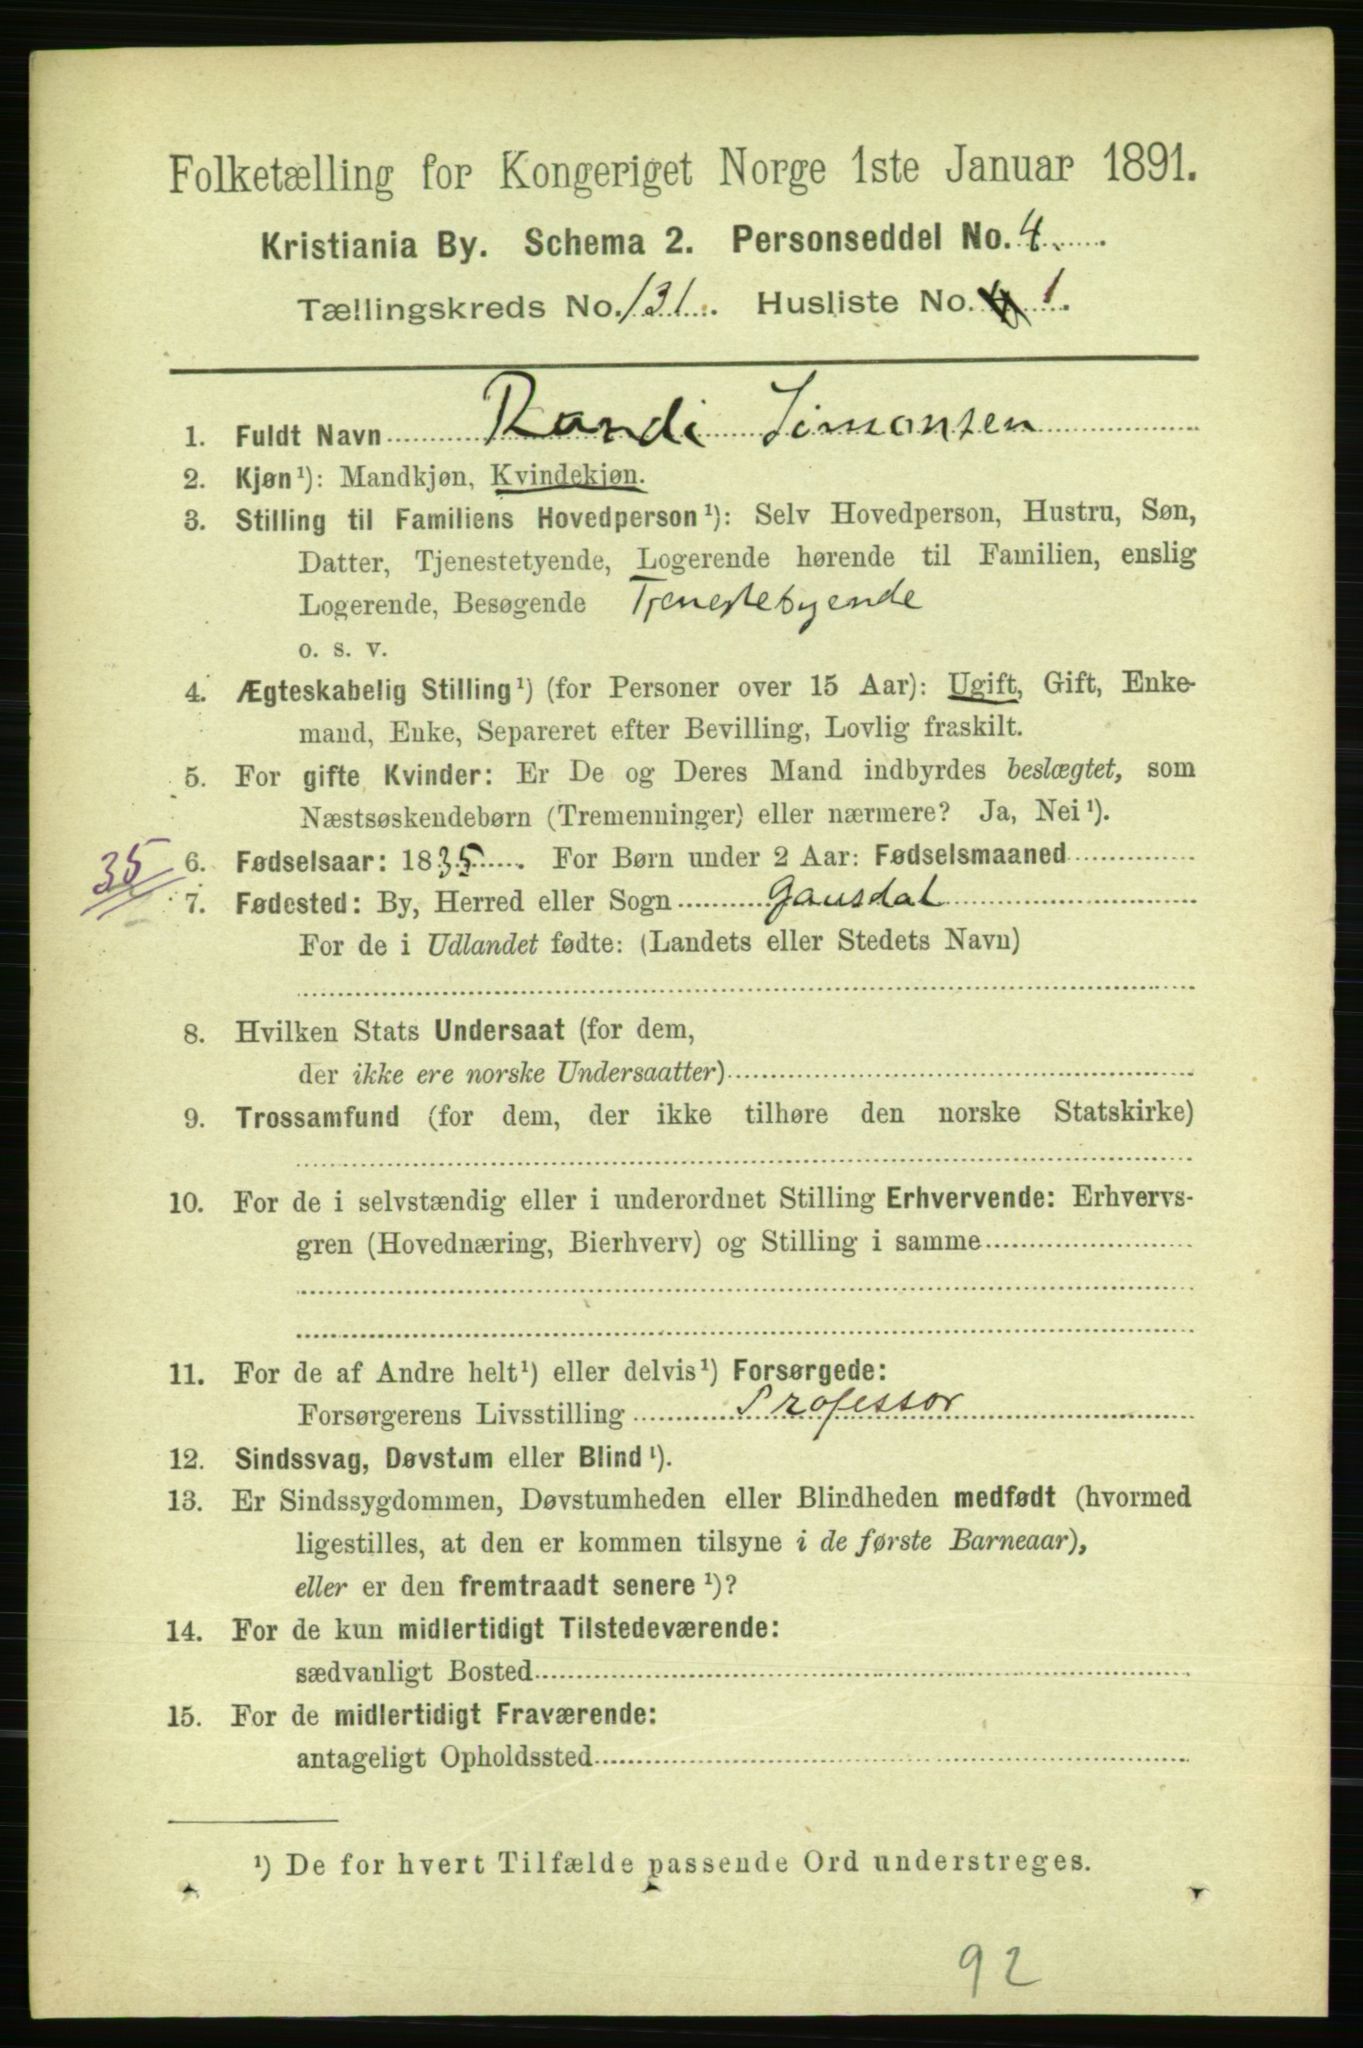 Folketælling for Kongeriget Norge 1ste Januar 1891.
Kristiania By. Schema 2. Personseddel No. 4.
Tællingskreds No. 131. Husliste No. 1.
1. Fuldt Navn Randi Simonsen
2. Kjøn ¹): Mandkjøn, Kvindekjøn.
3. Stilling til Familiens Hovedperson ¹): Selv Hovedperson, Hustru, Søn,
Datter, Tjenestetyende, Logerende hørende til Familien, enslig
Logerende, Besøgende Tjenestetyende
o. s. v.
4. Ægteskabelig Stilling ¹) (for Personer over 15 Aar): Ugift, Gift, Enke-
mand, Enke, Separeret efter Bevilling, Lovlig fraskilt.
5. For gifte Kvinder: Er De og Deres Mand indbyrdes beslægtet, som
Næstsøskendebørn (Tremenninger) eller nærmere? Ja, Nei ¹).
35
6. Fødselsaar: 1835. For Børn under 2 Aar: Fødselsmaaned
7. Fødested: By, Herred eller Sogn Gausdal
For de i Udlandet fødte: (Landets eller Stedets Navn)
8. Hvilken Stats Undersaat (for dem,
der ikke ere norske Undersaatter)
9. Trossamfund (for dem, der ikke tilhøre den norske Statskirke)
10. For de i selvstændig eller i underordnet Stilling Erhvervende: Erhvervs-
gren (Hovednæring, Bierhverv) og Stilling i samme
11. For de af Andre helt ¹) eller delvis ¹) Forsørgede:
Forsørgerens Livsstilling Professor
12. Sindssvag, Døvstum eller Blind ¹).
13. Er Sindssygdommen, Døvstumheden eller Blindheden medfødt (hvormed
ligestilles, at den er kommen tilsyne i de første Barneaar),
eller er den fremtraadt senere ¹)?
14. For de kun midlertidigt Tilstedeværende:
sædvanligt Bosted
15. For de midlertidigt Fraværende:
antageligt Opholdssted
¹) De for hvert Tilfælde passende Ord understreges.
92